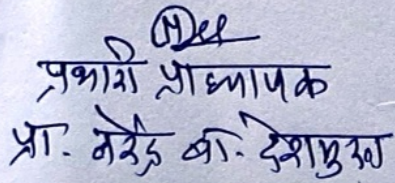 प्रभारी प्राध्यापक
प्रा. नरेंद्र बा. देशमुख